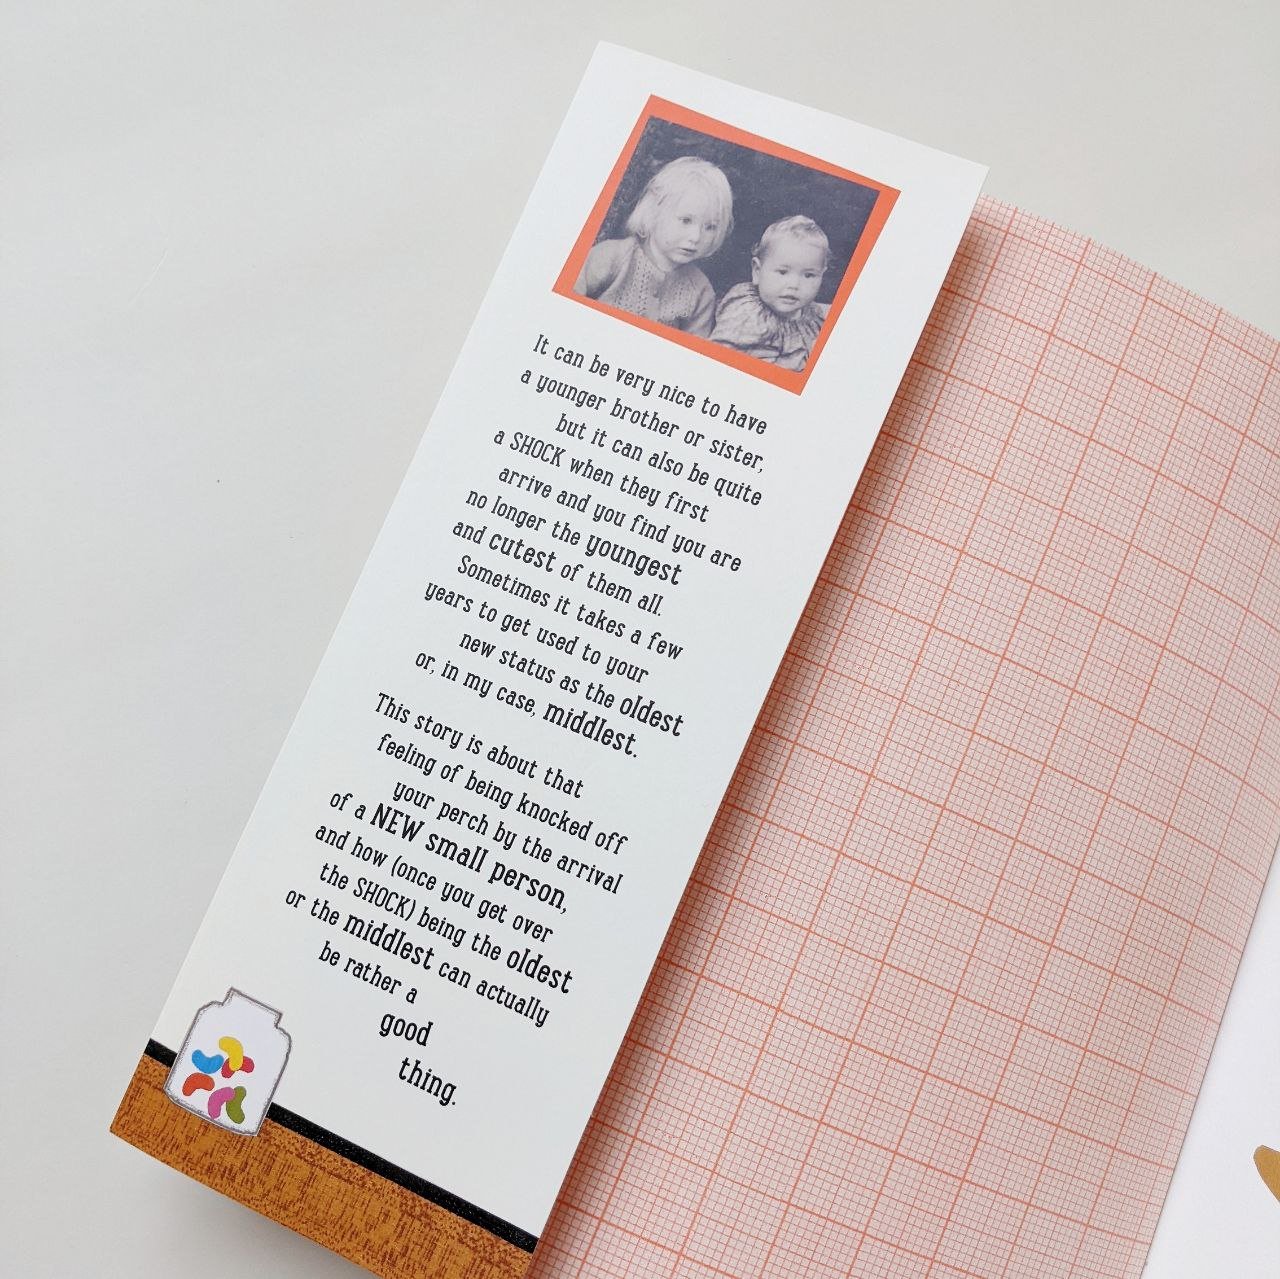 It can be very nice to have
a younger brother or sister,
but it can also be quite
a SHOCK when they first
arrive and you find you are
no longer the youngest
and cutest of them all.
Sometimes it takes a few
years to get used to your
new status as the oldest
or, in my case, middlest.
This story is about that
feeling of being knocked off
your perch by the arrival
of a NEW small person,
and how (once you get over
the SHOCK) being the oldest
or the middlest can actually
be rather a
good
thing.